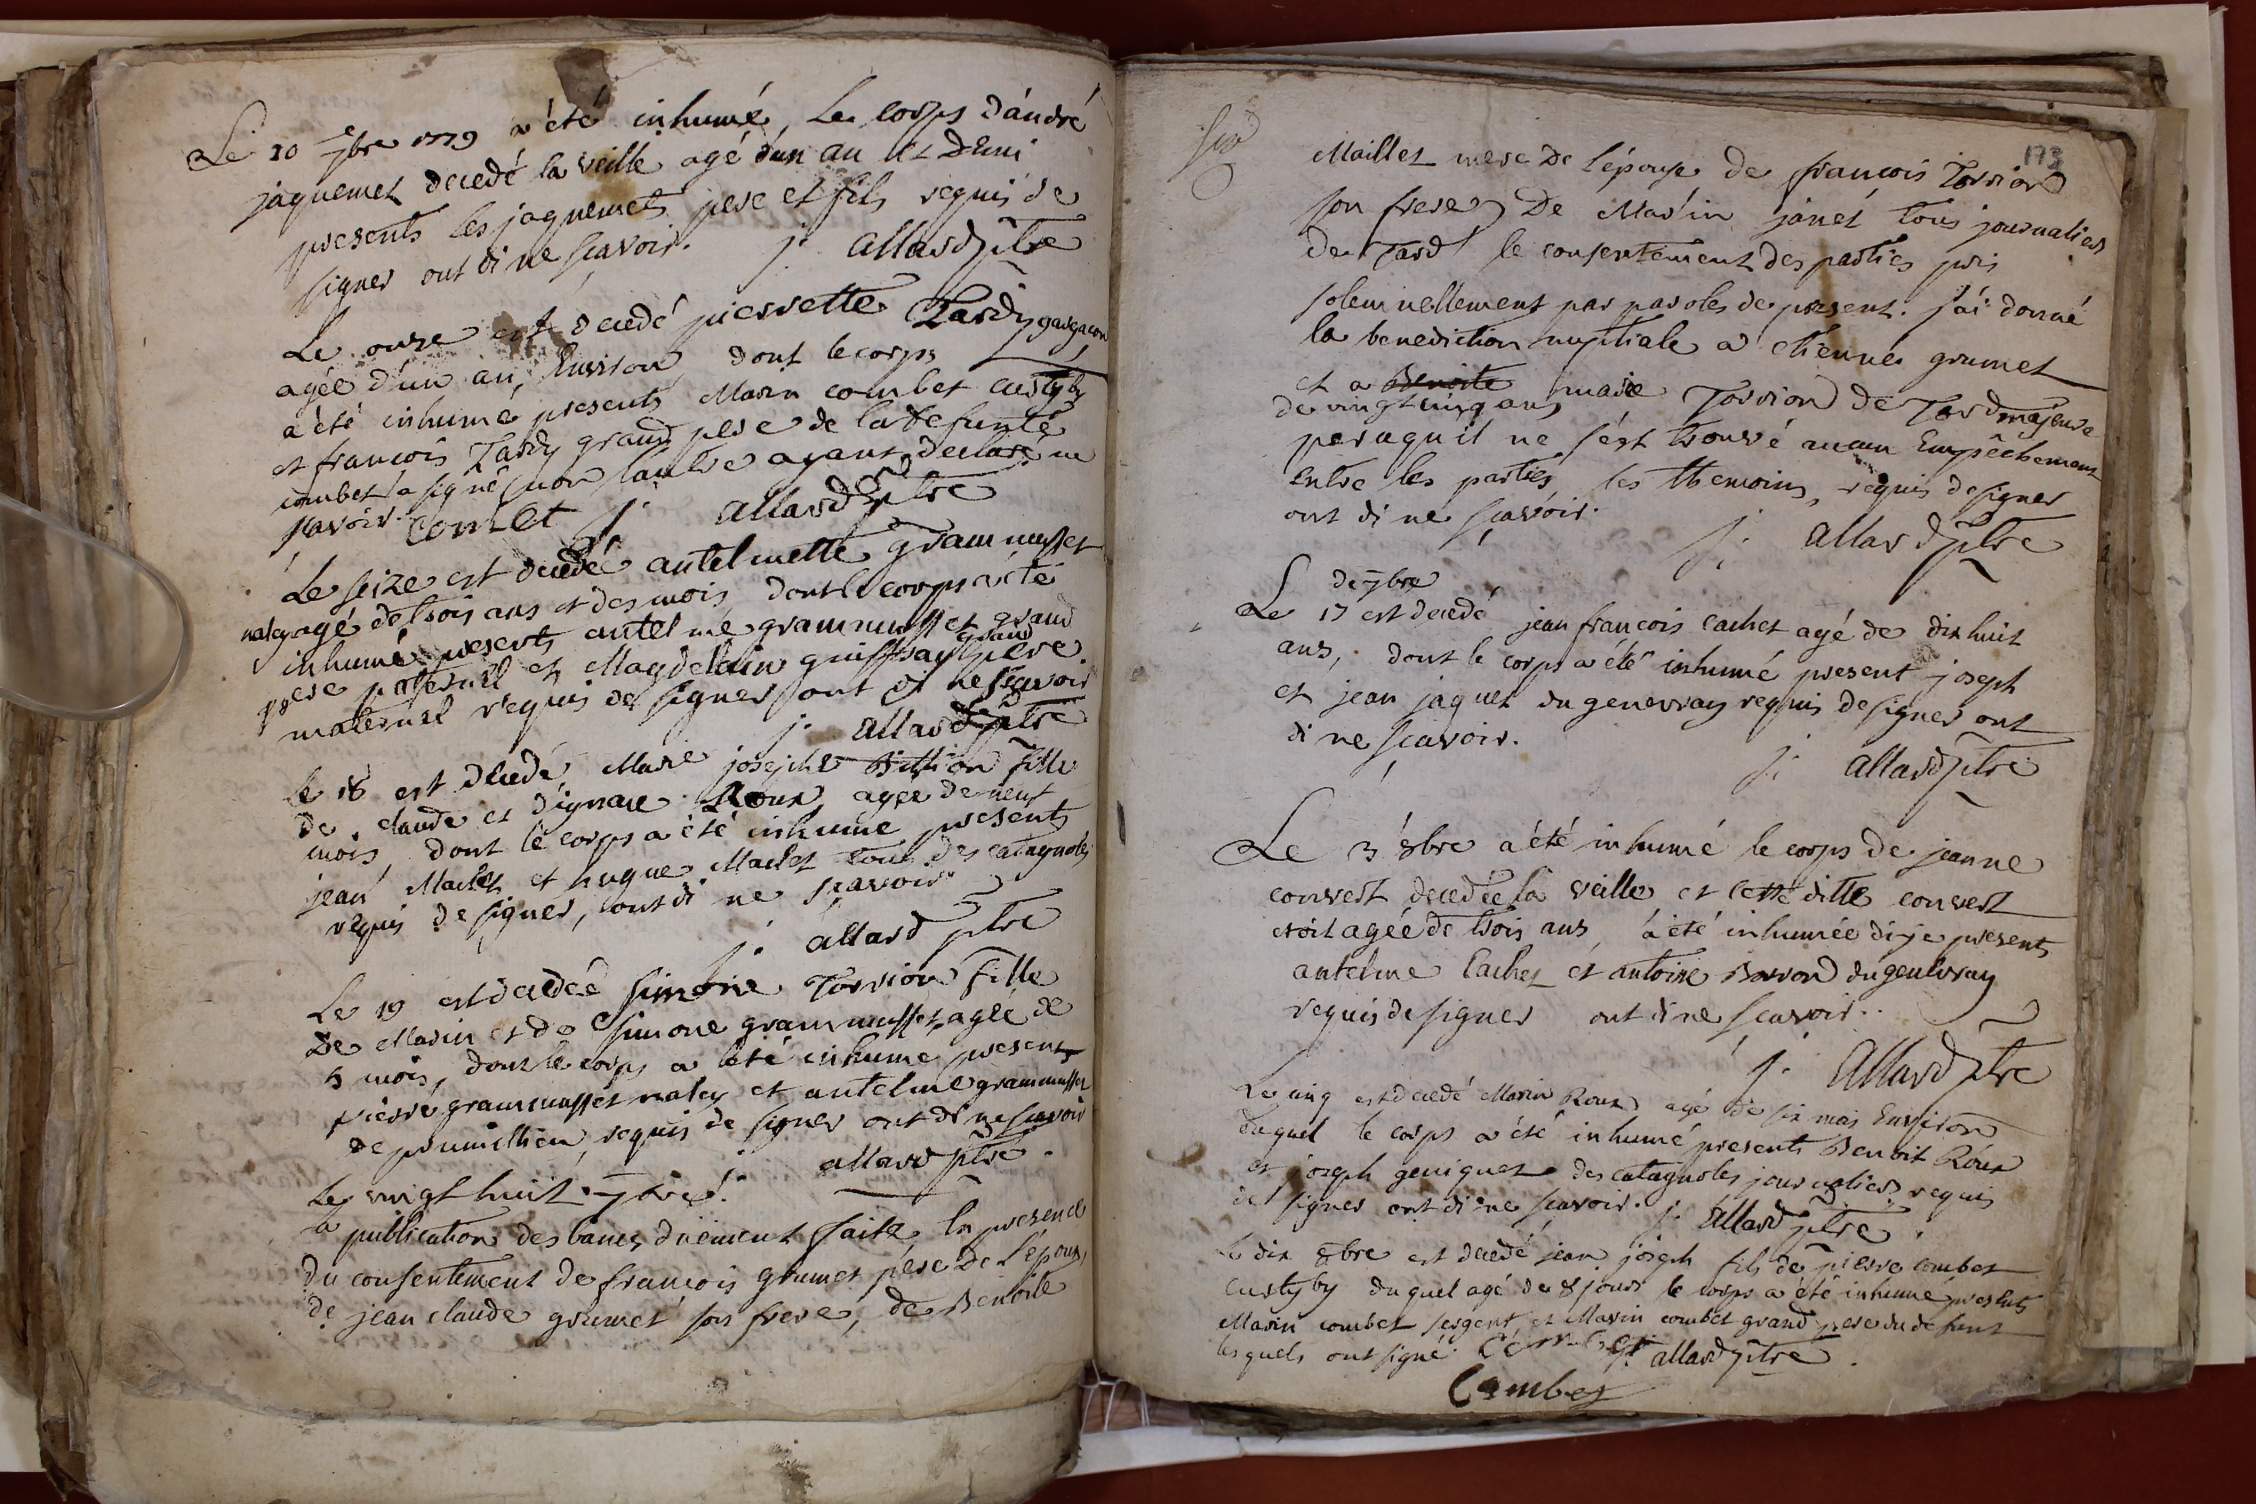 Le 10 7bre 1779 a été inhumé, Le corps d'andré
jaquemet decedé la veille agé d'un an et Demi
presents les jaquemets pere et fils requis de
signer ont di ne scavoir. j. allard ptre
Le onze est decedé pierrette Tardy gasgacon
agée d'un an, Environ dont le corps
a été inhumé presents Marin combet custyby
et francois Tardy grand pere de la defunte
combet a signé non l'autre ayant declaré ne
scavoir. combet j. allard ptre
Le seize est decedé antelmette grammusset
naley agé de trois ans et des mois, dont le corps a été
inhumé presents antelme grammusset grand
pere paternel et Magdelain guiffray grand pere
maternel requis de signer ont di ne scavoir
j. allard ptre
le 18 est decedé Marie josephe Billion fille
de claude et d'ignace Roux agée de neuf
mois, dont le corps a été inhumé presents
jean Maclet et hugue Maclet tous des catagnoles
requis de signer, ont di ne scavoir
j. allard ptre
Le 19 est decedée simone Torrion fille
De Marin et de simone grammusset, agée de
5 mois, dont le corps a été inhumé present
pierre grammusset naley et antelme grammusset
de premillieu, requis de signer ont di ne scavoir
j. allard ptre.
Le vingt huit 7bre
a publication des bancs duëment faite, En presence
du consentement de francois grumet père de l'époux,
de jean claude grumet son frere, de Benoite
173
Maillet mere De l'épouse de françois Torrion
son frere, De Marin janet tous journaliers
de Tard le consentement des parties pris
solemnellement par paroles de present. j'ai donné
la benediction nuptiale a etienne grumet
et a Benoite marie Torrion de Tard majeure
de vingt cinq ans
peraqu il ne s'est trouvé aucun Empêchement
Entre les parties, les themoins, requis de signer
ont di ne scavoir.
j. allard ptre
de 7bre
Le 17 est decedé jean francois cachet agé de dix huit
ans, dont le corps a été inhumé present joseph
et jean jaquet du genevray requis de signer ont
di ne scavoir.
j. allard ptre
Le 3 8bre a été inhumé le corps de jeanne
convert decedée la veille et cette ditte convert
etoit agée de trois ans, a été inhumée di-je presents
antelme Cachet et antoine Borron du genevray
requis de signer ont di ne scavoir..
j. allard ptre
Le cinq est decedé Marin Roux agé de six mois Environ
duquel le corps a été inhumé presents Benoit Roux
et joseph geniquet des catagnoles journaliers requis
de signer ont di ne scavoir. j. allard ptre
Le dix 8bre est decedé jean joseph fils de pierre combet
custyby duquel agé de 8 jours le corps a été inhumé presents
Marin combet sergent et Marin combet grand pere du defunt
lesquels ont signé. Combet j. allard ptre.
Combet